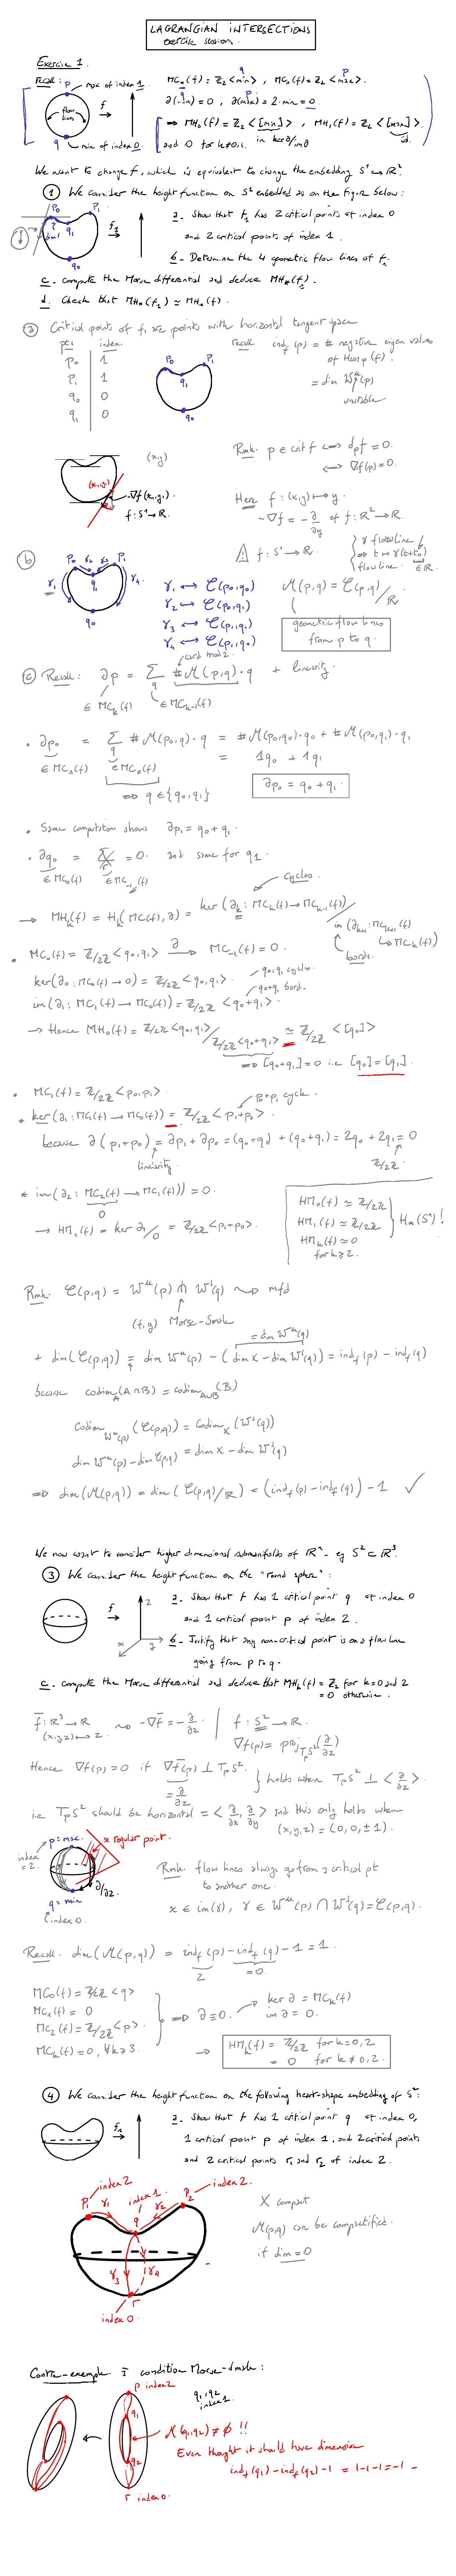 LAGRANGIAN INTERSECTIONS
exercise session.
Exercise 1.
Recall: p max of index 1
flow lines
f
q min of index 0.
MC₀(f) = ℤ₂<min>, MC₁(f) = ℤ₂<max>.
∂(min) = 0, ∂(max) = 2·min = 0.
⇒ MH₀(f) = ℤ₂<[min]>, MH₁(f) = ℤ₂<[max]>.
and 0 for k≠0,1. in ker∂/im∂ id.
We want to change f, which is equivalent to change the embedding S¹ ↪ ℝ².
① We consider the height function on S¹ embedded as on the figure below:
P₀ P₁ q₁ q₀ f₁
a - Show that f₁ has 2 critical points of index 0
and 2 critical points of index 1.
b - Determine the 4 geometric flow lines of f₁.
c - compute the Morse differential and deduce MH*(f₁).
d. Check that MH*(f₁) ≃ MH*(f).
ⓐ Critical points of f₁ are points with horizontal tangent space
pts index.
P₀ 1
P₁ 1
q₀ 0
q₁ 0
P₀ P₁ q₁ q₀
recall ind_f(p) = # negative eigen values
of Hess_p(f).
= dim Wᵘ(p)
unstable
(x,y)
(x₁,y₁)
-∇f(x₁,y₁)
f: S¹→ℝ.
Rmk. p ∈ crit f ⟷ d_pf = 0.
⟷ ∇f(p) = 0.
Here f: (x,y) ↦ y
-∇f = -∂/∂y of f: ℝ²→ℝ.
f: S¹→ℝ.
γ flow line
⇒ t ↦ γ(t+t₀)
flow line. ∈ℝ.
ⓑ P₀ γ₂ γ₃ P₁
γ₁ q₁ γ₄
q₀
γ₁ ↔ 𝓛(p₀,q₀)
γ₂ ↔ 𝓛(p₀,q₁)
γ₃ ↔ 𝓛(p₁,q₁)
γ₄ ↔ 𝓛(p₁,q₀)
ℳ(p,q) = 𝓛(p,q)/ℝ
geometric flow lines
from p to q.
card mod 2
ⓒ Recall: ∂p = Σ_q #ℳ(p,q)·q + linearity.
∈ MC_k(f) ∈ MC_{k-1}(f)
• ∂p₀ = Σ_q #ℳ(p₀,q)·q = #ℳ(p₀,q₀)·q₀ + #ℳ(p₀,q₁)·q₁
∈ MC₁(f) ∈ MC₀(f) = 1q₀ + 1q₁
⇒ q ∈ {q₀,q₁} ∂p₀ = q₀ + q₁.
• Same computation shows ∂p₁ = q₀ + q₁.
• ∂q₀ = Σ = 0. and same for q₁
∈ MC₀(f) ∈ MC₋₁(f)
cycles.
→ MH_k(f) = H_k(MC(f),∂) = ker(∂_k: MC_k(f)→MC_{k-1}(f))/im(∂_{k+1}: MC_{k+1}(f) ↪ MC_k(f))
bords.
• MC₀(f) = ℤ/2ℤ<q₀,q₁> —∂→ MC₋₁(f) = 0.
ker(∂₀: MC₀(f)→0) = ℤ/2ℤ<q₀,q₁>. q₀,q₁ cycles.
im(∂₁: MC₁(f)→MC₀(f)) = ℤ/2ℤ<q₀+q₁>. q₀+q₁ bord.
→ Hence MH₀(f) = ℤ/2ℤ<q₀,q₁>/ℤ/2ℤ<q₀+q₁> ≃ ℤ/2ℤ <[q₀]>
⇒ [q₀+q₁] = 0 i.e [q₀] = [q₁].
• MC₁(f) = ℤ/2ℤ<p₀,p₁>.
* ker(∂₁: MC₁(f)→MC₀(f)) = ℤ/2ℤ<p₁+p₀>. p₀+p₁ cycle.
because ∂(p₁+p₀) = ∂p₁+∂p₀ = (q₀+q₁)+(q₀+q₁) = 2q₀+2q₁ = 0
linearity ℤ/2ℤ
* im(∂₂: MC₂(f)→MC₁(f)) = 0.
0
→ HM₁(f) = ker ∂₁/0 = ℤ/2ℤ<p₁+p₀>.
HM₀(f) ≃ ℤ/2ℤ
HM₁(f) ≃ ℤ/2ℤ
HM_k(f) ≃ 0
for k≥2.
H*(S¹)!
Rmk. 𝓛(p,q) = Wᵘ(p) ⋔ Wˢ(q) ⇝ mfd
(f,g) Morse-Smale
= dim Wᵘ(q)
+ dim(𝓛(p,q)) = dim Wᵘ(p) - (dim X - dim Wˢ(q)) = ind_f(p) - ind_f(q)
because codim_A(A∩B) = codim_{A∪B}(B)
codim_{Wᵘ(p)}(𝓛(p,q)) = codim_X(Wˢ(q))
dim Wᵘ(p) - dim 𝓛(p,q) = dim X - dim Wˢ(q)
⇒ dim(ℳ(p,q)) = dim(𝓛(p,q)/ℝ) = (ind_f(p) - ind_f(q)) - 1 ✓
We now want to consider higher dimensional submanifolds of ℝⁿ - eg S² ⊂ ℝ³.
③ We consider the height function on the "round sphere":
f z x y
a - Show that f has 1 critical point q of index 0
and 1 critical point p of index 2.
b - Justify that any non-critical point is on a flow line
going from p to q.
c - compute the Morse differential and deduce that MH_k(f) = ℤ₂ for k=0 and 2
= 0 otherwise.
f̄: ℝ³→ℝ ⇝ -∇f̄ = -∂/∂z
(x,y,z) ↦ z
f: S²→ℝ.
∇f(p) = proj_{T_pS²}(∂/∂z)
Hence ∇f(p) = 0 if ∇f̄(p) ⊥ T_pS². } holds when T_pS² ⊥ <∂/∂z>.
= ∂/∂z
i.e T_pS² should be horizontal = <∂/∂x, ∂/∂y> and this only holds when
(x,y,z) = (0,0,±1).
p = max. x regular point.
index = 2.
∂/∂z
q = min
index 0.
Rmk. flow lines always go from a critical pt
to another one.
x ∈ im(γ), γ ∈ Wᵘ(p) ∩ Wˢ(q) = 𝓛(p,q).
Recall. dim(ℳ(p,q)) = ind_f(p) - ind_f(q) - 1 = 1.
2 = 0.
MC₀(f) = ℤ/2ℤ<q>
MC₁(f) = 0
MC₂(f) = ℤ/2ℤ<p>.
MC_k(f) = 0, ∀k≥3.
⇒ ∂ ≡ 0.
ker ∂ = MC_k(f)
im ∂ = 0.
→ HM_k(f) = ℤ/2ℤ for k=0,2
= 0 for k≠0,2.
④ We consider the height function on the following heart-shape embedding of S²:
a - Show that f has 1 critical point q of index 0,
1 critical point p of index 1, and 2 critical points
and 2 critical points r₁ and r₂ of index 2.
index 2 index 1 index 2.
P₁ γ₁ γ₂ P₂
q
γ₃ γ₄
r
index 0.
X compact
ℳ(p,q) can be compactified.
if dim = 0
Contre-exemple à condition Morse-Smale:
p index 2
q₁
q₂
r index 0.
q₁,q₂
index 1.
ℳ(q₁,q₂) ≠ ∅ !!
Even thought it should have dimension
ind_f(q₁) - ind_f(q₂) - 1 = 1-1-1 = -1